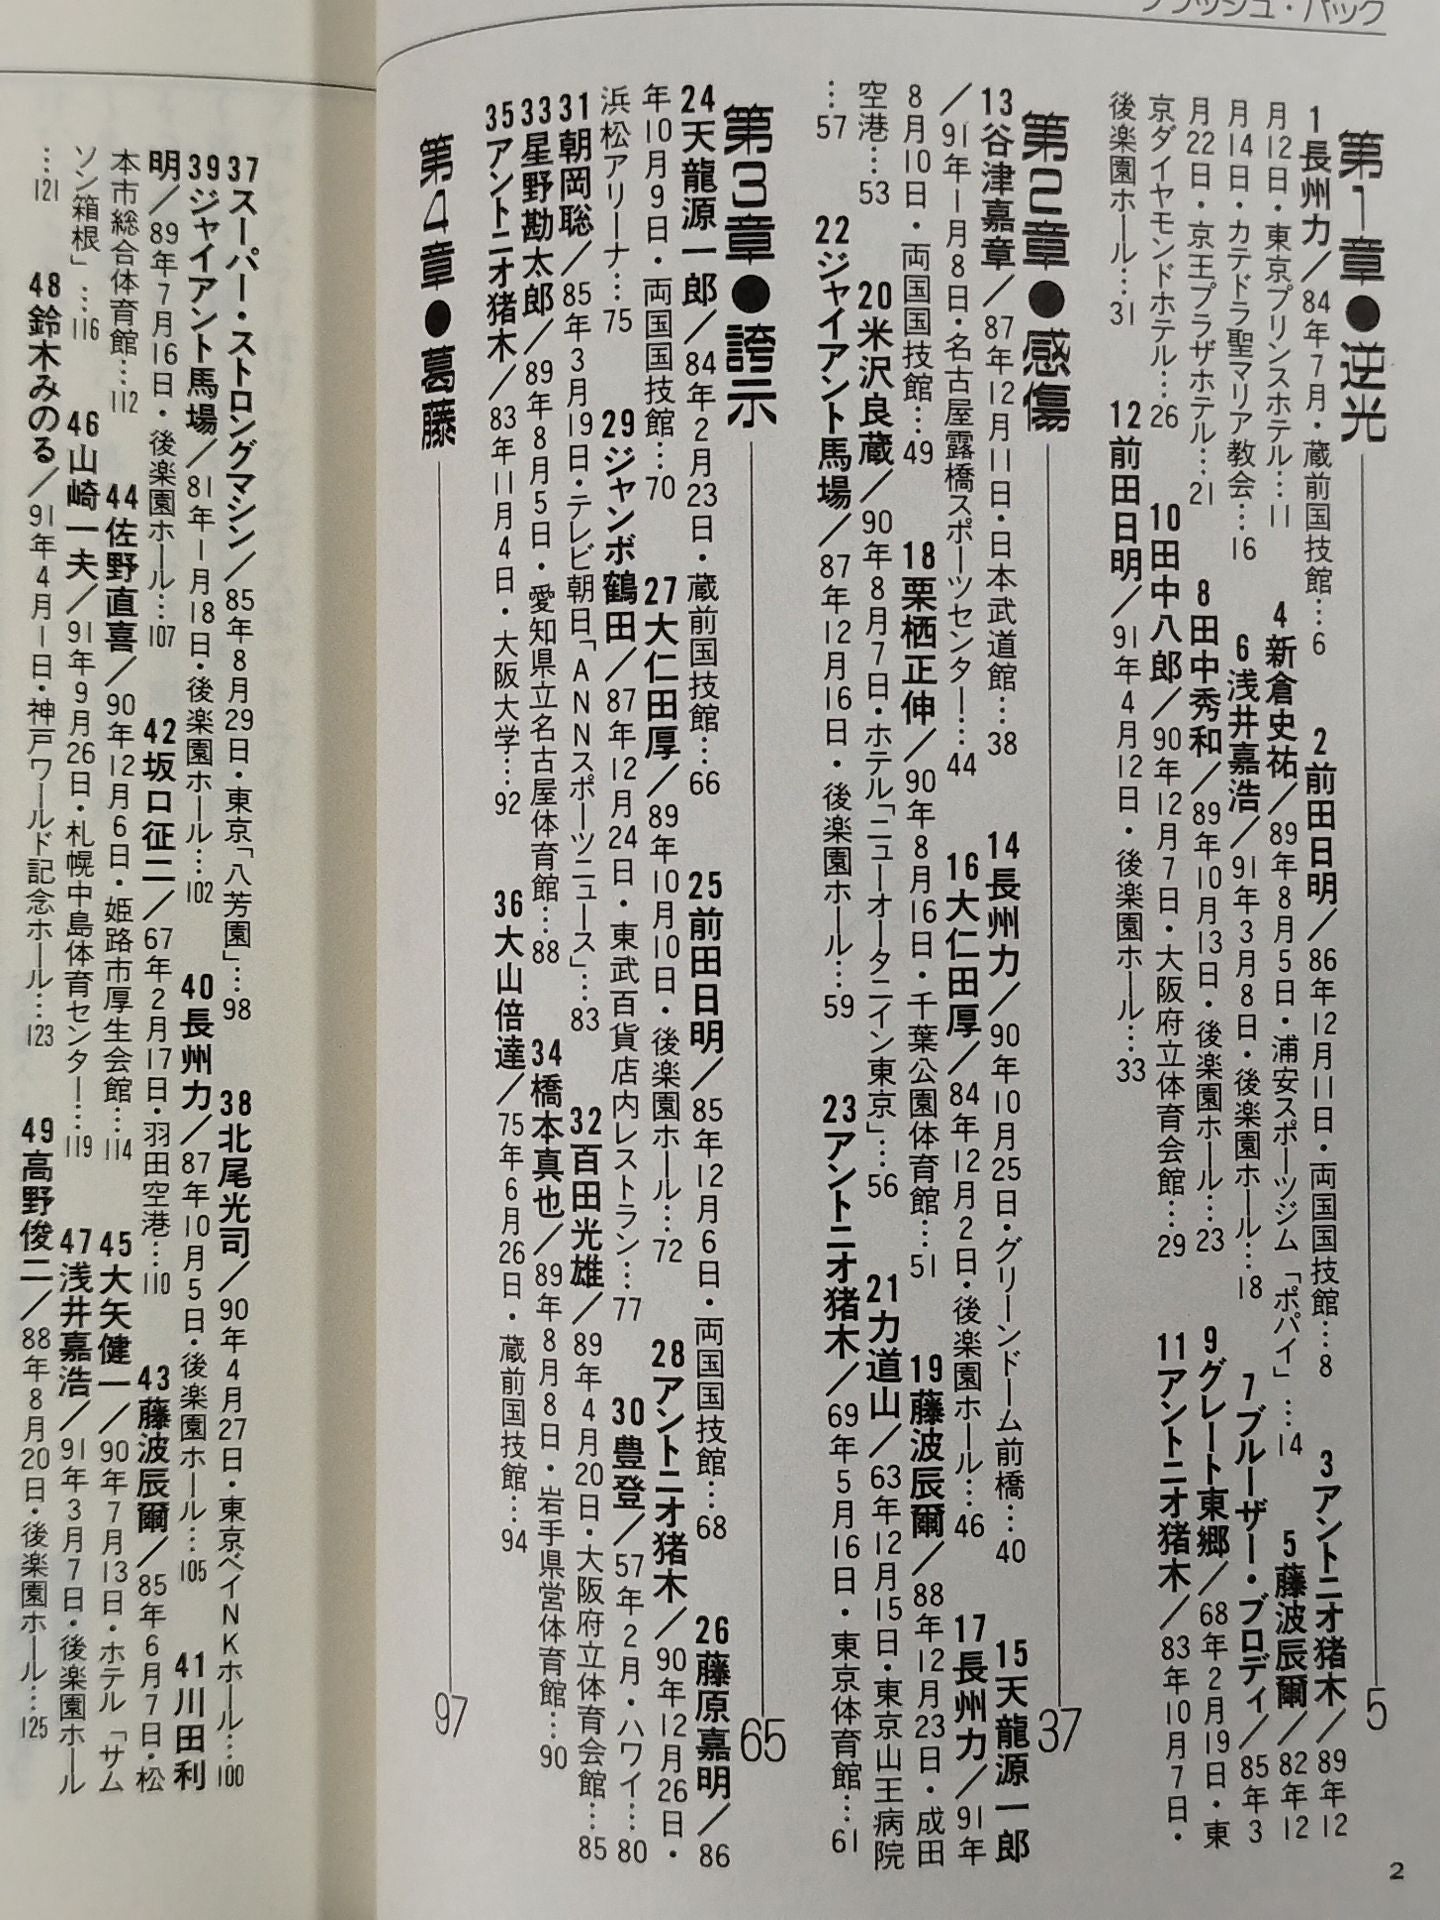 ラッシュ・バック
第1章●逆光 5
1長州力／84年7月・蔵前国技館…6 2前田日明／86年12月11日・両国国技館…8 3アントニオ猪木／89年12
月12日・東京プリンスホテル…11 4新倉史祐／89年8月5日・浦安スポーツジム「ポパイ」…14 5藤波辰爾／82年12
月14日・カテドラ聖マリア教会…16 6浅井嘉浩／91年3月8日・後楽園ホール…18 7ブルーザー・ブロディ／85年3
月22日・京王プラザホテル…21 8田中秀和／89年10月13日・後楽園ホール…23 9グレート東郷／68年2月19日・東
京ダイヤモンドホテル…26 10田中八郎／90年12月7日・大阪府立体育会館…29 11アントニオ猪木／83年10月7日・
後楽園ホール…31 12前田日明／91年4月12日・後楽園ホール…33
第2章●感傷 37
13谷津嘉章／87年12月11日・日本武道館…38 14長州力／90年10月25日・グリーンドーム前橋…40 15天龍源一郎
／91年1月8日・名古屋露橋スポーツセンター…44 16大仁田厚／84年12月2日・後楽園ホール…46 17長州力／91年
8月10日・両国国技館…49 18栗栖正伸／90年8月16日・千葉公園体育館…51 19藤波辰爾／88年12月23日・成田
空港…53 20米沢良蔵／90年8月7日・ホテル「ニューオータニイン東京」…56 21力道山／63年12月15日・東京山王病院
…57 22ジャイアント馬場／87年12月16日・後楽園ホール…59 23アントニオ猪木／69年5月16日・東京体育館…61
第3章●誇示 65
24天龍源一郎／84年2月23日・蔵前国技館…66 25前田日明／85年12月6日・両国国技館…68 26藤原嘉明／86
年10月9日・両国国技館…70 27大仁田厚／89年10月10日・後楽園ホール…72 28アントニオ猪木／90年12月26日・
浜松アリーナ…75 29ジャンボ鶴田／87年12月24日・東武百貨店内レストラン…77 30豊登／57年2月・ハワイ…80
31朝岡聡／85年3月19日・テレビ朝日「ANNスポーツニュース」…83 32百田光雄／89年4月20日・大阪府立体育会館…85
33星野勘太郎／89年8月5日・愛知県立名古屋体育館…88 34橋本真也／89年8月8日・岩手県営体育館…90
35アントニオ猪木／83年11月4日・大阪大学…92 36大山倍達／75年6月26日・蔵前国技館…94
第4章●葛藤 97
2
37スーパー・ストロングマシン／85年8月29日・東京「八芳園」…98 38北尾光司／90年4月27日・東京ベイNKホール…100
39ジャイアント馬場／81年1月18日・後楽園ホール…102 40長州力／87年10月5日・後楽園ホール…105 41川田利
明／89年7月16日・後楽園ホール…107 42坂口征二／67年2月17日・羽田空港…110 43藤波辰爾／85年6月7日・松
本市総合体育館…112 44佐野直喜／90年12月6日・姫路市厚生会館…114 45大矢健一／90年7月13日・ホテル「サム
ソン箱根」…116 46山崎一夫／91年9月26日・札幌中島体育センター…119 47浅井嘉浩／91年3月7日・後楽園ホール
…121 48鈴木みのる／91年4月1日・神戸ワールド記念ホール…123 49高野俊二／88年8月20日・後楽園ホール…125